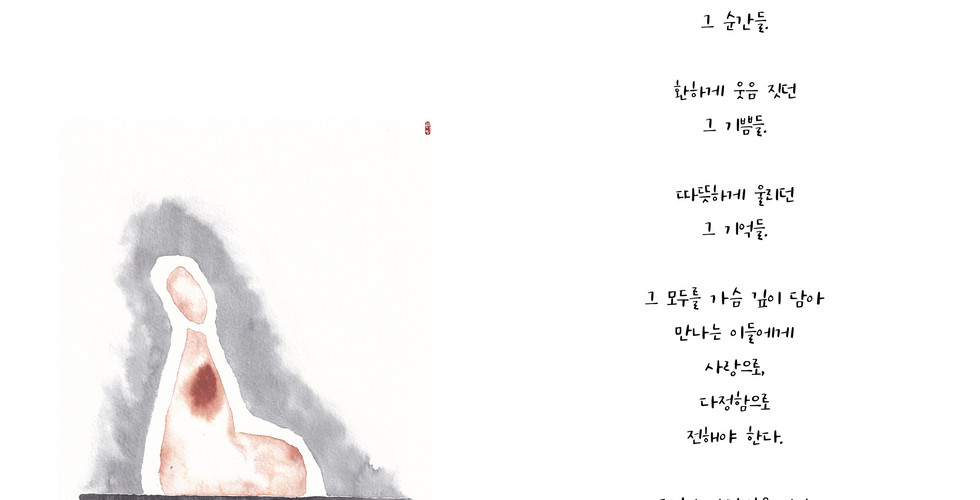 그 순간들.
환하게 웃음 짓던
그 기쁨들.
따뜻하게 울리던
그 기억들.
그 모두를 가슴 깊이 담아
만나는 이들에게
사랑으로,
다정함으로
전해야 한다.